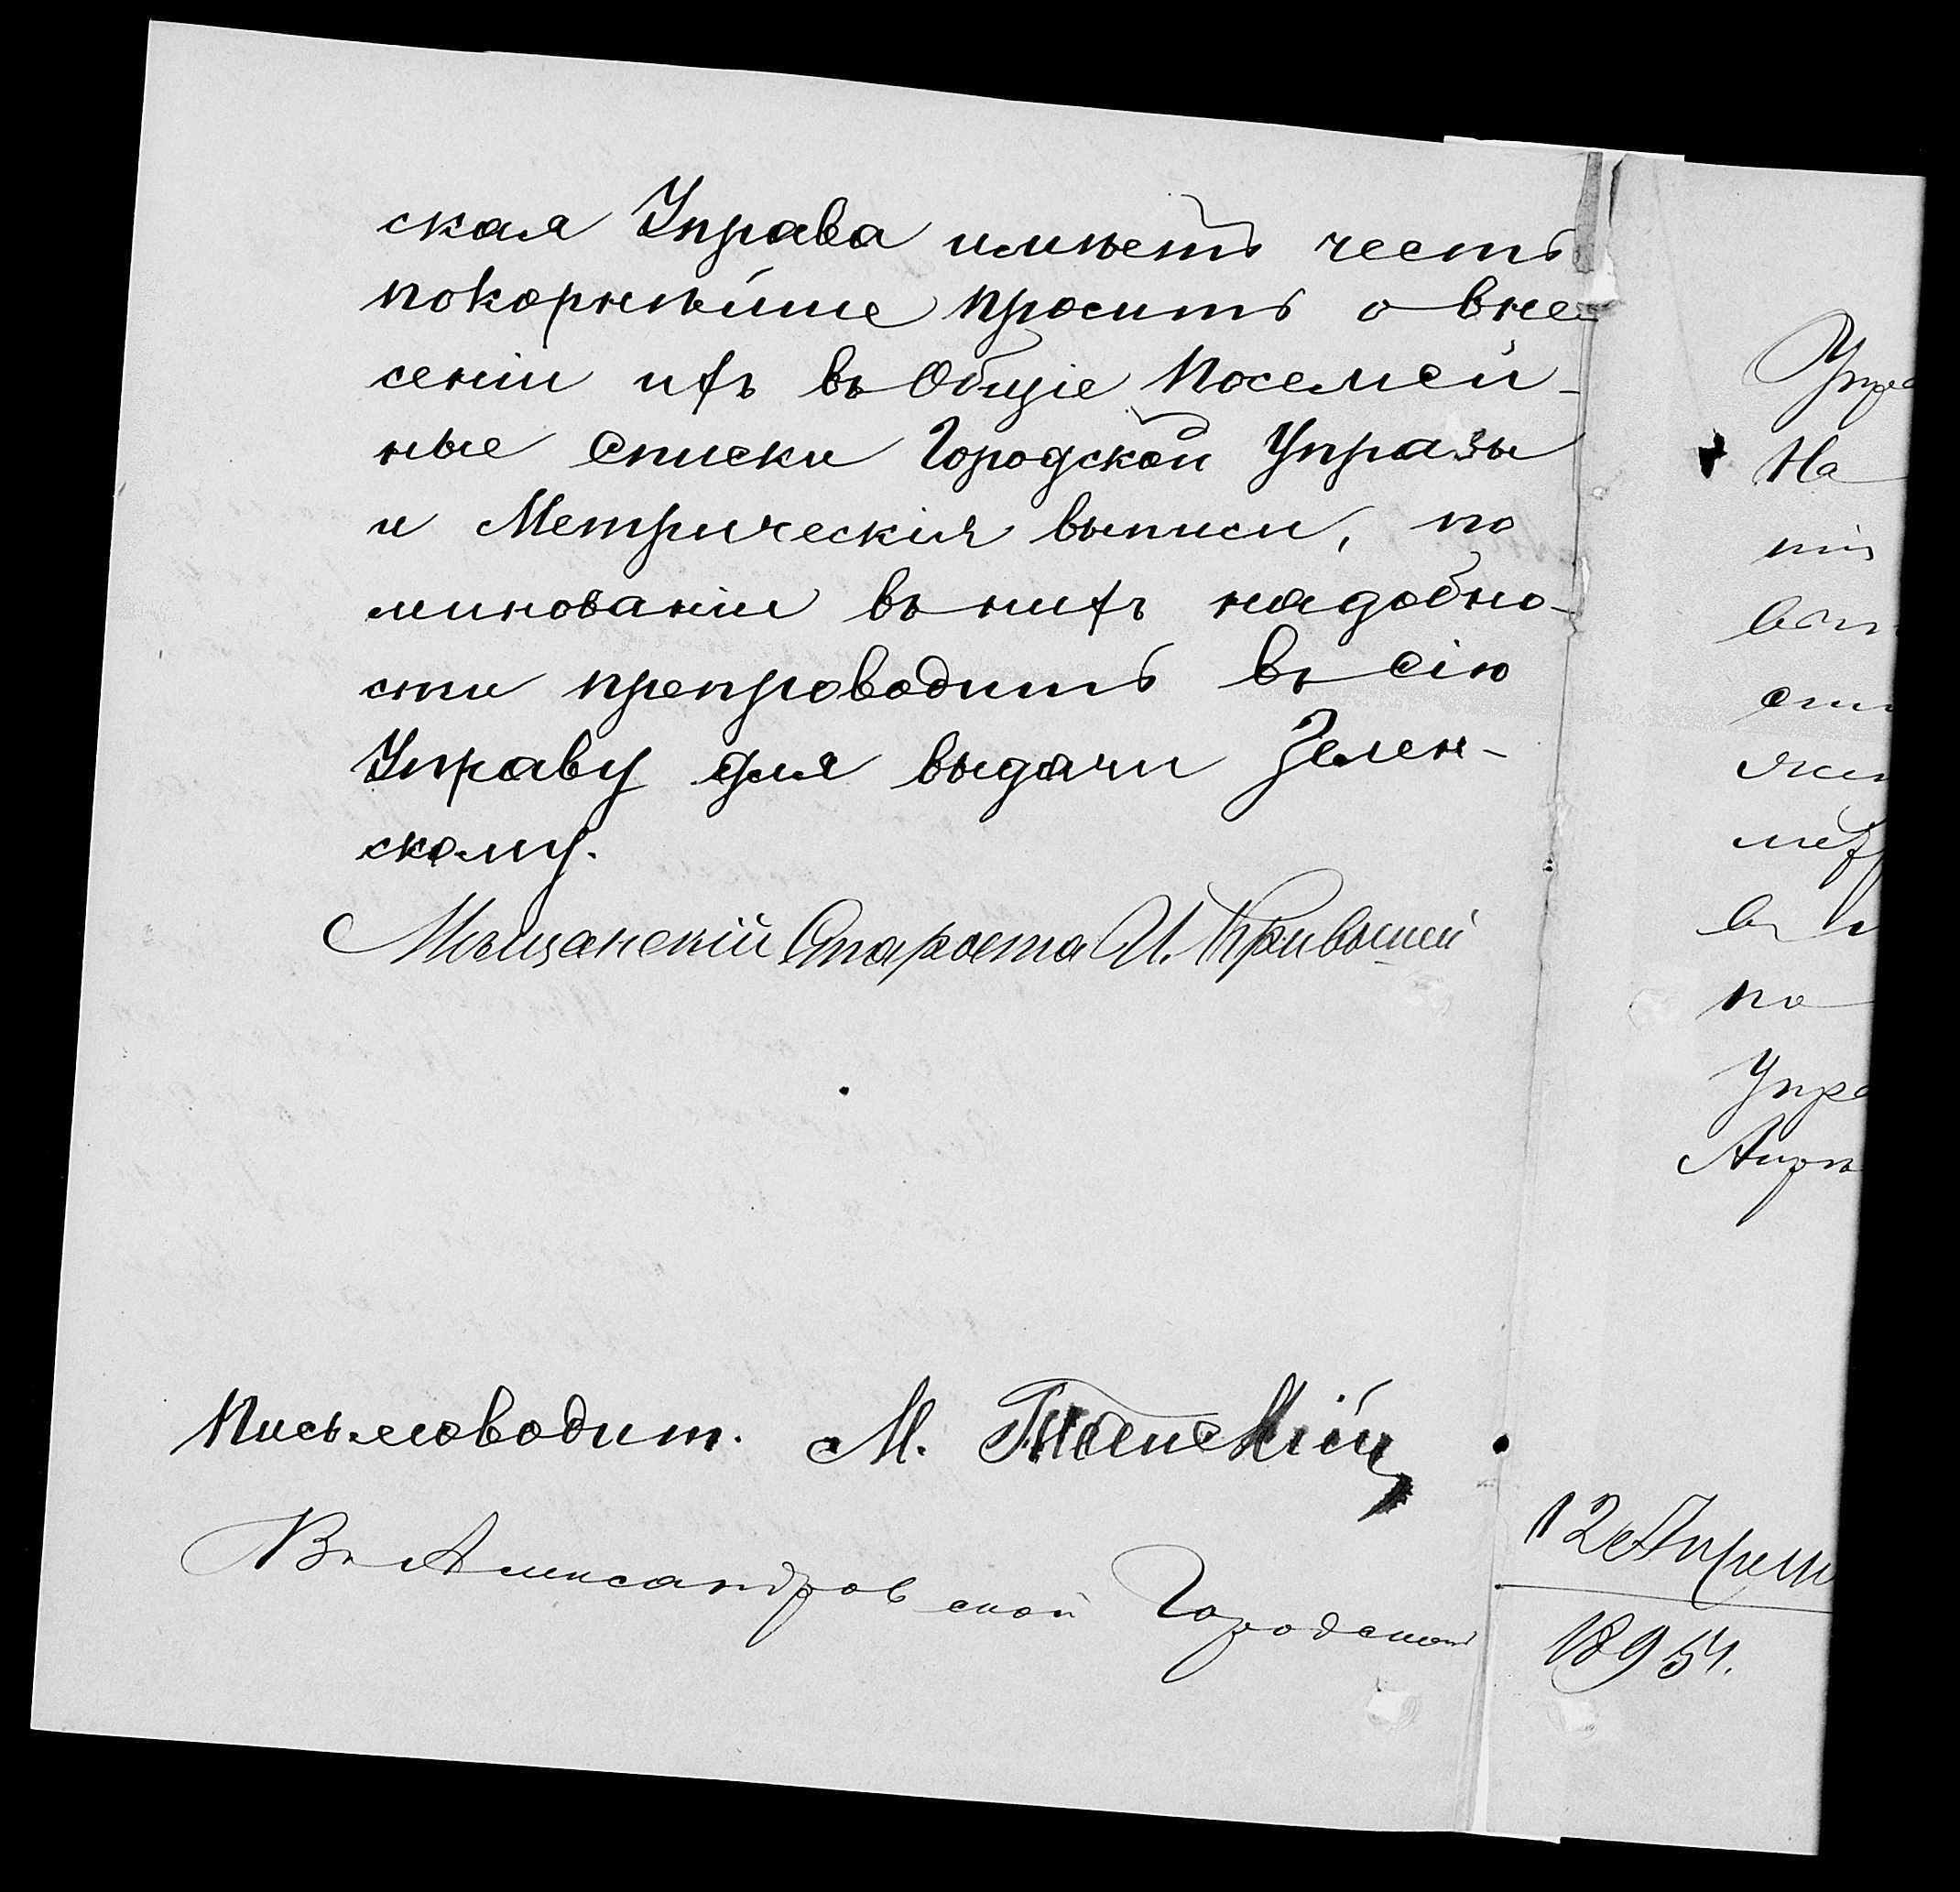 ская Управа имѣетъ честь
покорнѣйше просить о вне-
сеніи ихъ въ Общіе Посемей-
ные Списки Городской Управы
и Метрическія выписи, по
минованіи въ нихъ надобно-
сти препроводить въ сію
Управу для выдачи Зелен-
скому.
Мѣщанскій Староста И.
Письмоводит. М.
Въ Александровской Городской
Упра
На
по
Упра
12 Апрѣля
1895 г.